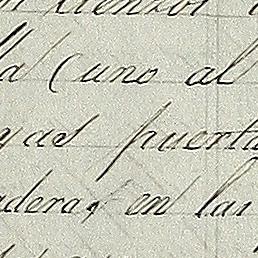 lienzos
la (uno al
yas puerta
adera, en las